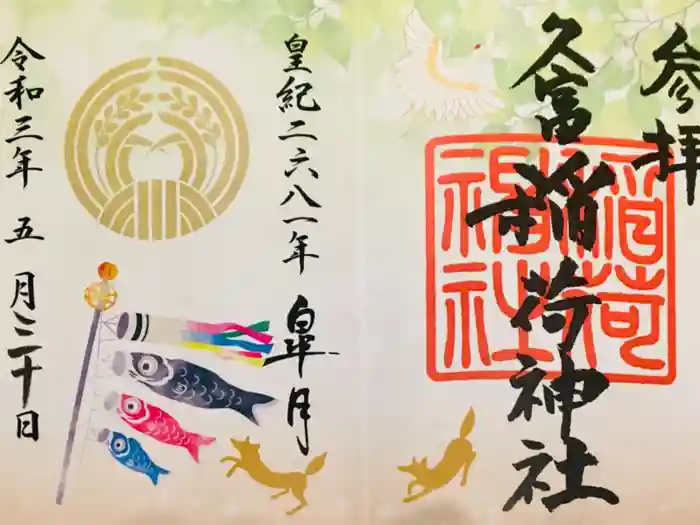 参拝
久富稲荷神社
稲荷
神社
皇紀二六八一年 皐月
令和三年 五月三十日